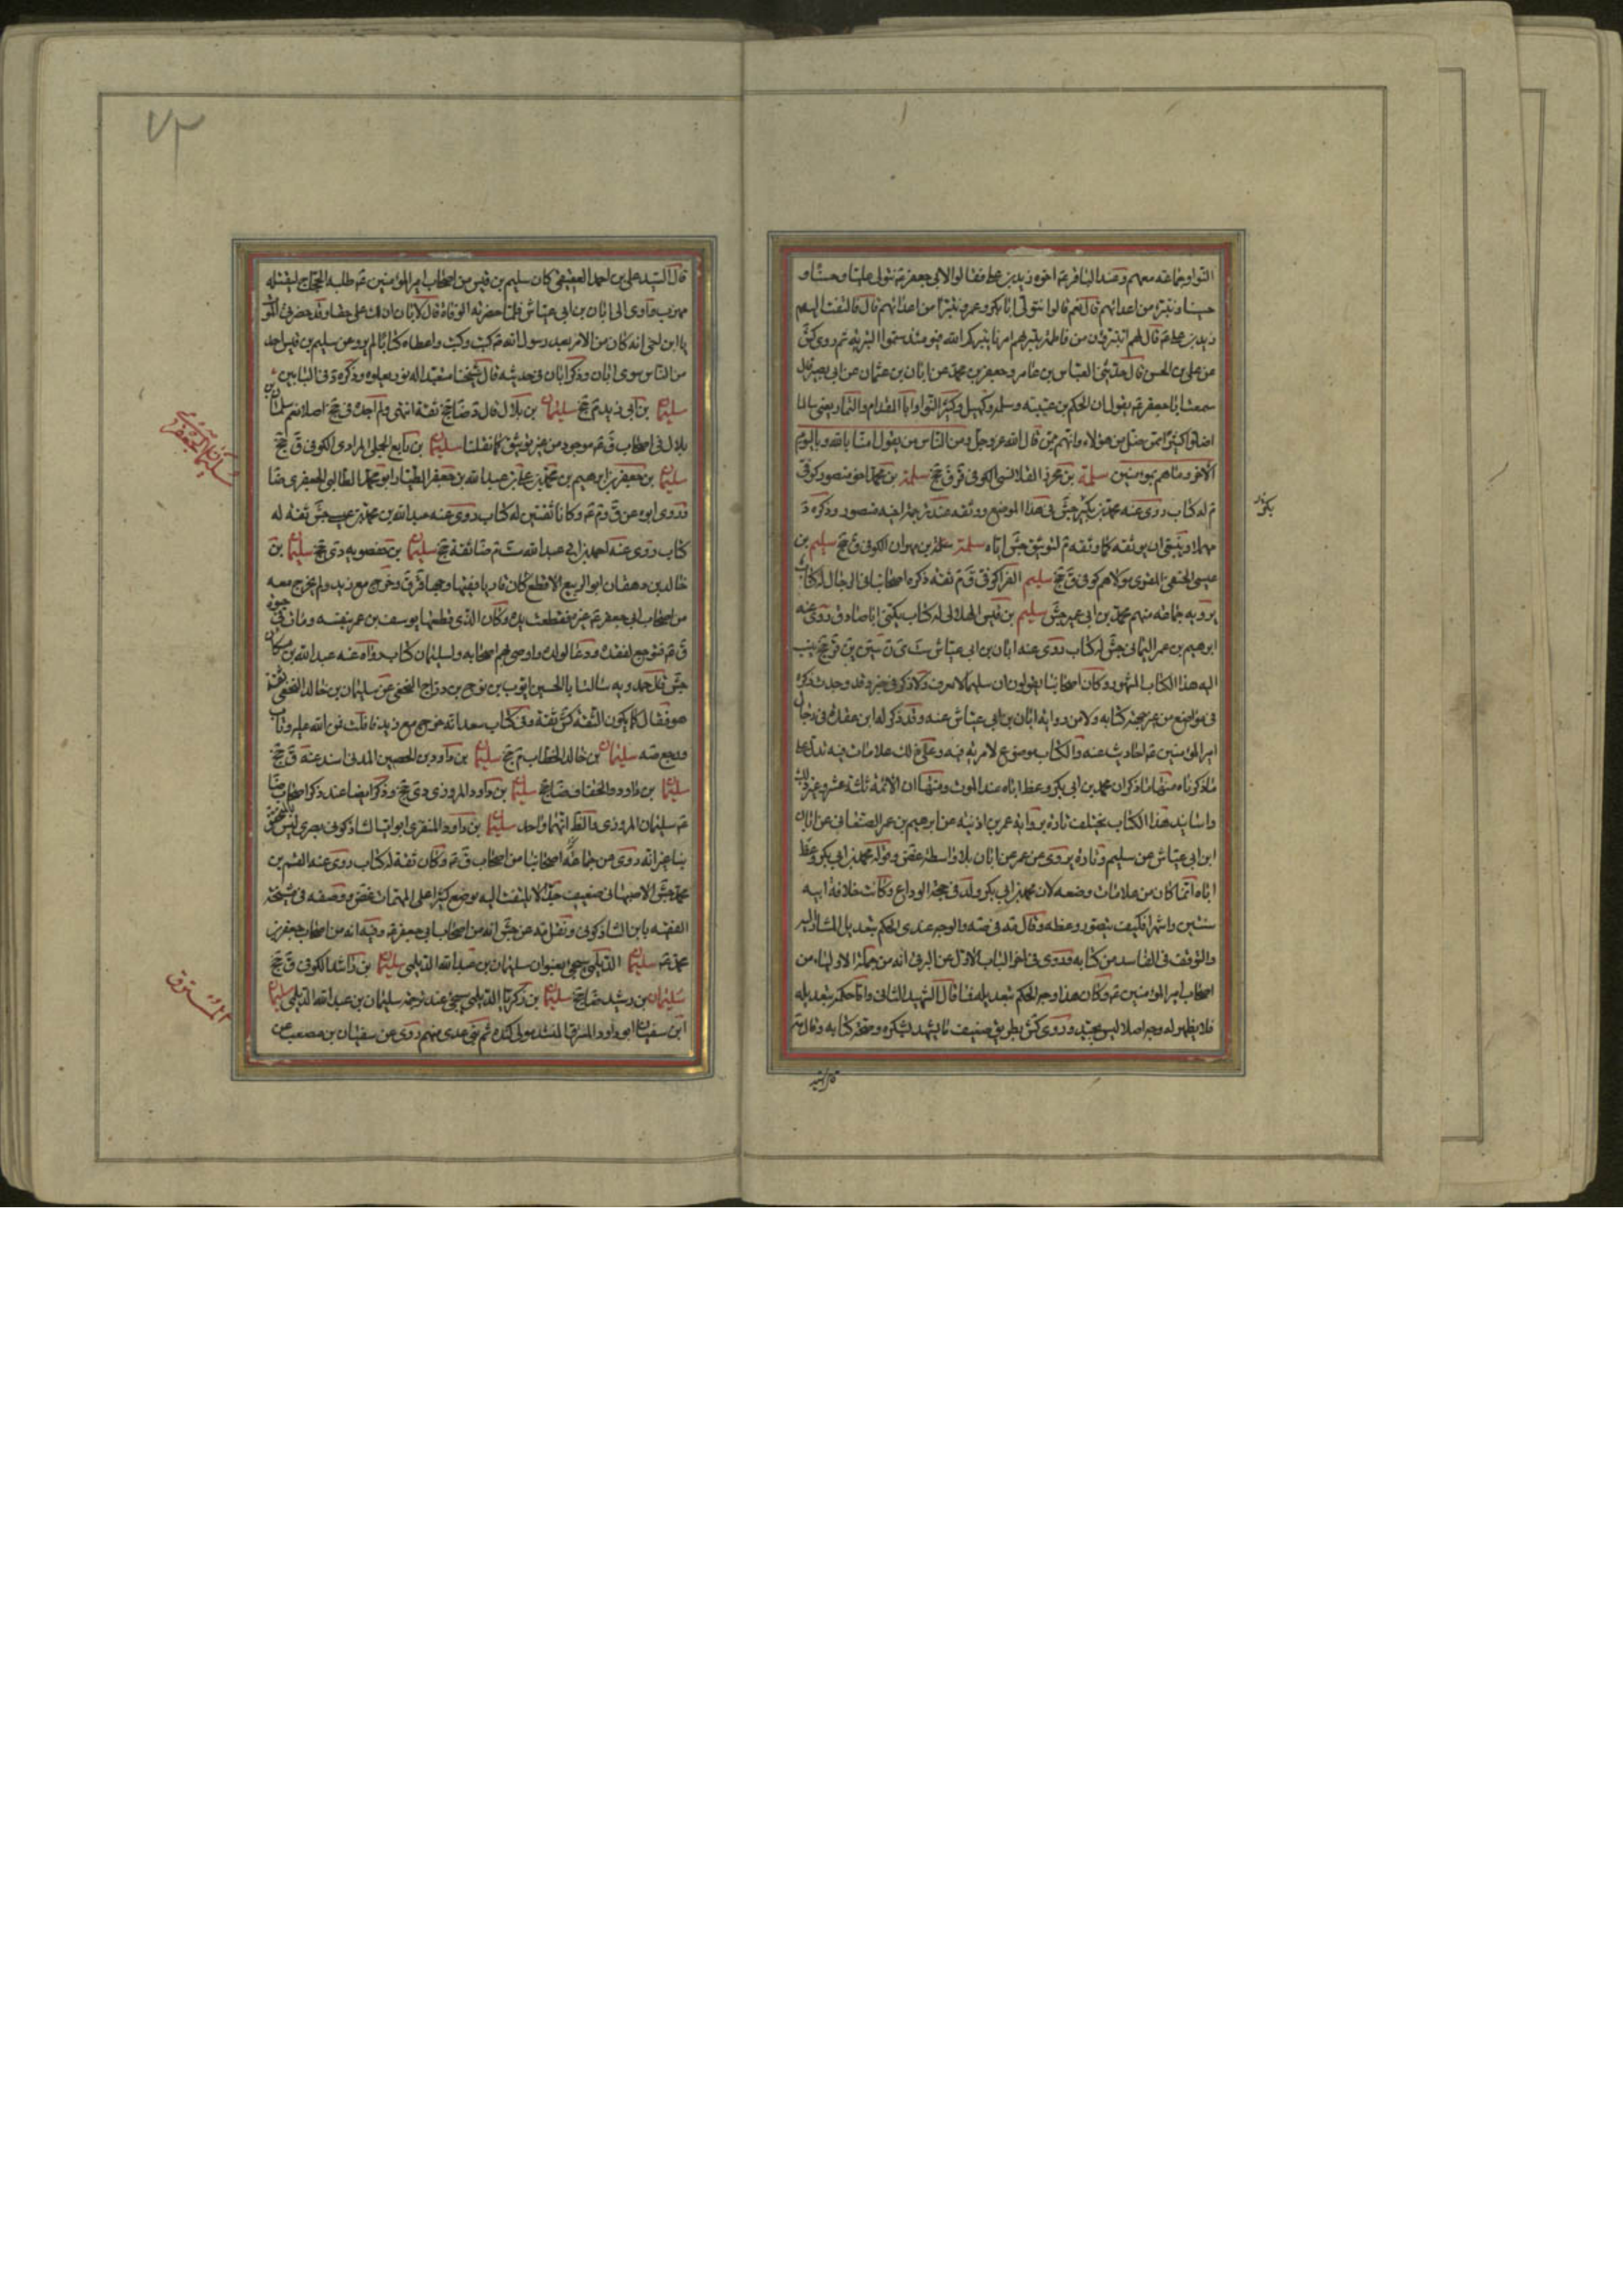 النوا وجماعة معهم وعند الباقر عم اخوه زيد بن على فقالوا لابي جعفر عم نتولى عليا وحسنا و
حسينا ونتبرا من اعدائهم قال نعم قالوا نتولى ابا بكر وعمر ونتبرا من اعدائهم قال فالتفت اليهم
زيد بن على عم قال لهم اتتبرؤن من فاطمة بترتم امرنا بتركم الله فيومئذ سموا البترية ثم روى كش
عن على بن الحسن قال حدثنى العباس بن عامر وجعفر بن محمد عن ابان بن عثمان عن ابى بصير قال
سمعت ابا جعفر عم يقول ان الحكم بن عتيبة وسلمة وكهيل وكثير النوا وابا المقدام والتمار يعنى سالما
اضلوا كثيرا ممن ضل من هؤلاء وانهم ممن قال الله عز وجل ومن الناس من يقول امنا بالله وباليوم
الاخر وما هم بمومنين سلمة بن محرز القلانسى الكوفى قر ق جخ سلمة بن محمد اخو منصور كوفى
م له كتاب روى عنه محمد بن بكير جش فى هذا الموضع ووثقه عند ترجمة اخيه منصور وذكره د
مهملا وينبغى ان يوثقه كما وثقه م لتوثيق جش اياه سلمة بن مهران الكوفى ق جخ سليم بن
عيسى الحنفى المقرى مولاهم كوفى ق جخ سليم الفرا كوفى ق م ثقة ذكره اصحابنا فى الرجال له كتاب
يرويه جماعة منهم محمد بن ابى عمير جش سليم بن قيس الهلالى له كتاب يكنى ابا صادق روى عنه
ابرهيم بن عمر اليمانى جش له كتاب روى عنه ابان بن ابى عياش ست ى ن سين ين قر جخ ينسب
اليه هذا الكتاب المشهور وكان اصحابنا يقولون ان سليما لا يعرف ولا ذكر فى خبر وقد وجدت ذكره
فى مواضع من غير جهة كتابه ولا من رواية ابان بن ابى عياش عنه وقد ذكر له ابن عقدة فى رجال
امير المؤمنين عم احاديث عنه والكتاب موضوع لا مرية فيه وعلى ذلك علامات فيه تدل على
ما ذكرناه منها ما ذكر ان محمد بن ابى بكر وعظ اباه عند الموت ومنها ان الائمة ثلثة عشر وغير ذلك
واسانيد هذا الكتاب تختلف تارة برواية عمر بن اذينة عن ابرهيم بن عمر الصنعانى عن ابان
ابن ابى عياش عن سليم وتارة يروى عن عمر عن ابان بلا واسطة غض وقوله محمد بن ابى بكر وعظ
اباه انما كان من علامات وضعه لان محمد بن ابى بكر ولد فى حجة الوداع وكانت خلافة ابيه
سنتين واشهرا فكيف يتصور وعظه وقال مه فى صه والوجه عندى الحكم بتعديل المشار اليه
والتوقف فى الفاسد من كتابه وقد روى فى اخر الباب الاول عن البرقى انه من جملة الاولياء من
اصحاب امير المؤمنين عم وكان هذا وجه الحكم بتعديله فقال الشهيد الثانى واما حكمه بتعديله
فلا يظهر له وجه اصلا وروى كش بطريق ضعيف ما يشهد لشكره وصحة كتابه وقال م
قال السيد
بكر
قال السيد على بن احمد العقيقى كان سليم بن قيس من اصحاب امير المؤمنين عم طلبه الحجاج ليقتله
فهرب واوى الى ابان بن ابى عياش فلما حضرته الوفاة قال لابان ان لك على حقا وقد حضرنى الموت
يا ابن اخى انه كان من الامر بعد رسول الله ص كيت وكيت واعطاه كتابا فلم يرو عن سليم بن قيس احد
من الناس سوى ابان وذكر ابان فى حديثه قال كان شيخنا متعبدا له نور يعلوه وذكره د فى البابين
سليمان بن ابى زيد م جخ سليمان بن بلال فال د ضا جخ ثقة انتهى ولم اجده فى جخ اصلا نعم سليمان بن
بلال فى اصحاب ق عم موجود من غير توثيق كما نقلنا سليمان بن رابع الجبلى المرادى الكوفى ق جخ
سليمان بن جعفر بن ابرهيم بن محمد بن على بن عبد الله بن جعفر الطيار ابو محمد الطالبى الجعفرى ضا
وروى ابوه عن ق وم عم وكانا ثقتين له كتاب روى عنه عبد الله بن محمد بن عيسى جش ثقة له
كتاب روى عنه احمد بن ابى عبد الله ست م ضا ثقة جخ سليمان بن حفصويه دى جخ سليمان بن
خالد بن دهقان ابو الربيع الاقطع كان قاريا فقيها وجها قر ق وخرج مع زيد ولم يخرج معه
من اصحاب ابى جعفر عم غيره فقطعت يده وكان الذى قطعها يوسف بن عمر بنفسه ومات فى حيوة
ق عم فتوجع لفقده ودعا لولده واوصى بهم اصحابه ولسليمان كتاب رواه عنه عبد الله بن مسكان
جش قال حمدويه سالت ابا الحسين ايوب بن نوح بن دراج النخعى عن سليمان بن خالد النخعى اثقة
هو فقال كما يكون الثقة كش ثقة وفى كتاب سعد انه خرج مع زيد فافلت فمن الله عليه وتاب
ورجع صه سليمان بن خالد الخطاب م جخ سليمان بن داود بن الحصين المدنى اسند عنه ق جخ
سليمان بن داود الخفاف ضا جخ سليمان بن داود المروزى دى جخ وذكر ايضا عند ذكر اصحاب ضا
عم سليمان المروزى والظ انهما واحد سليمان بن داود المنقرى ابو ايوب الشاذكونى بصرى ليس بالمتحقق
بنا غير انه روى عن جماعة اصحابنا من اصحاب ق عم وكان ثقة له كتاب روى عنه القسم بن
محمد جش الاصبهانى ضعيف جدا لا يلتفت اليه يوضع كثيرا على المهمات غض ووصفه فى مشيخة
الفقيه بابن الشاذكونى ونقل مه عن جش انه من اصحاب ابى جعفر عم وفيه انه من اصحاب جعفر بن
محمد عم سليمان الديلمى سيجئ بعنوان سليمان بن عبد الله الديلمى سليمان بن راشد الكوفى ق جخ
سليمان بن رشيد ضا جخ سليمان بن زكريا الديلمى سيجئ عند ترجمة سليمان بن عبد الله الديلمى سليمان
ابن سفيان ابو داود المسترق المنشد مولى كنده ثم بنى عدى منهم روى عن سفيان بن مصعب عن
سليمان الجعفرى
المسترق
٧٣